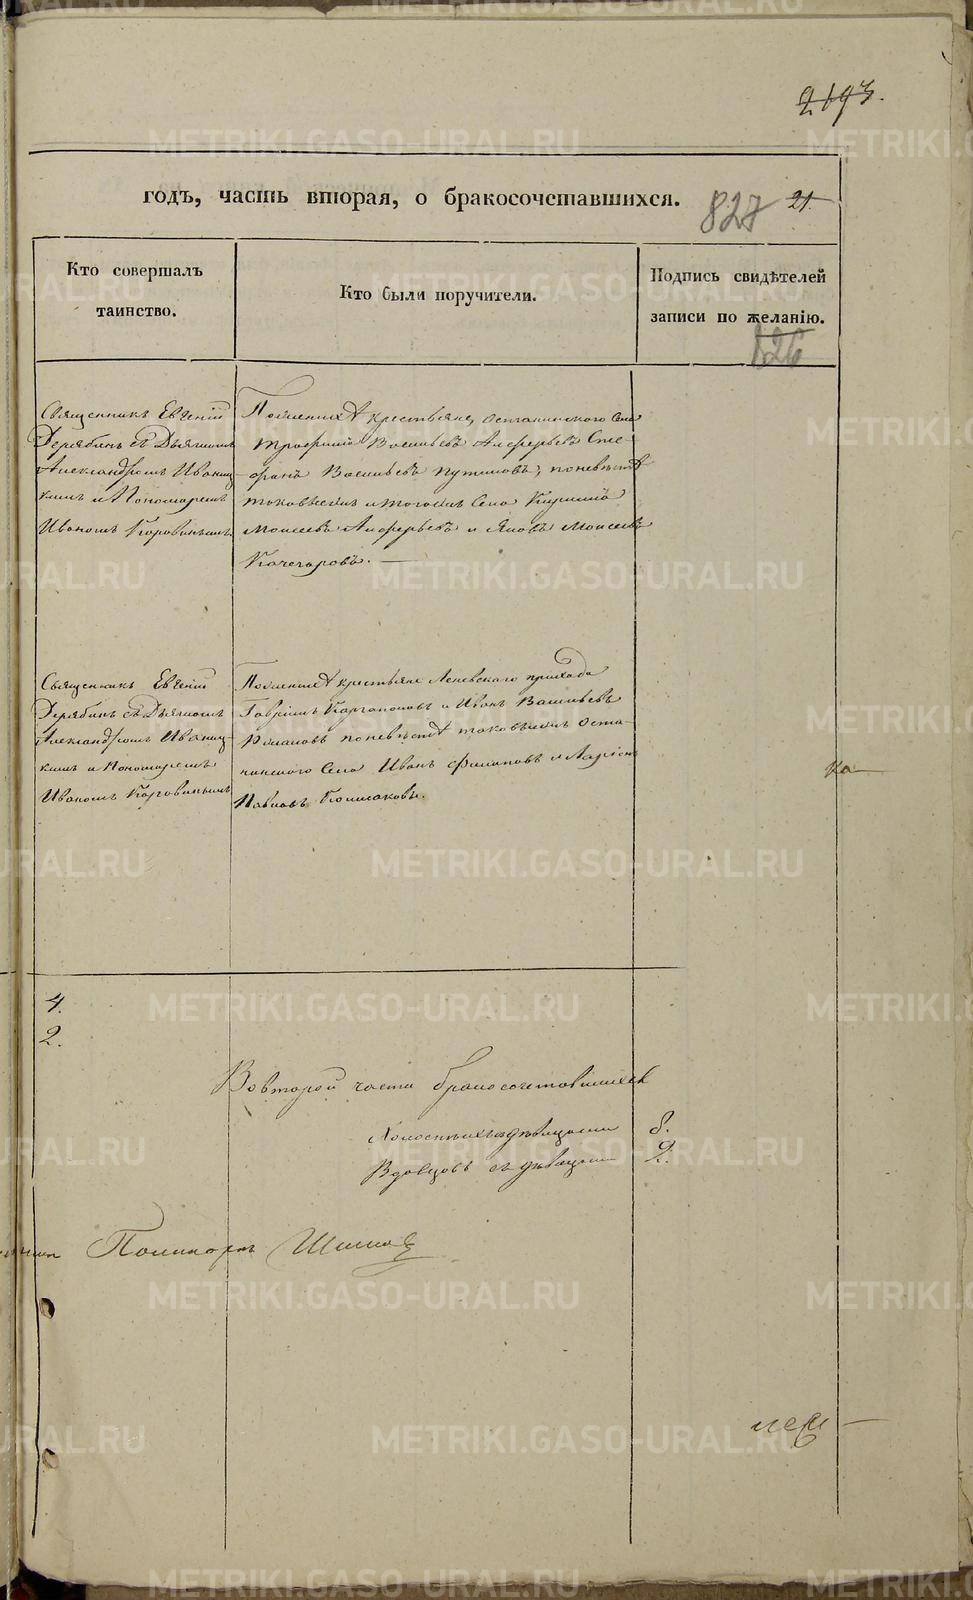 2193.
годъ, часть вторая, о бракосочетавшихся.
827 21.
Кто совершалъ
таинство.
Кто были поручители.
Подпись свидѣтелей
записи по желанію.
826
Священникъ Евгеній
Дерябинъ съ Дьякономъ
Александромъ Иваниц-
кимъ и Пономаремъ
Иваномъ Коровинымъ.
По женихѣ крестьяне, Останинскаго Села
Трофимъ Васильевъ Алферьевъ Сте-
фанъ Васильевъ Путиловъ; по невѣстѣ
таковыежъ и тогожъ Села
Моисеевъ Алферьевъ и Яковъ Моисеевъ
Кочегаровъ.
Священникъ Евгеній
Дерябинъ съ Дьякономъ
Александромъ Иваниц-
кимъ и Пономаремъ
Иваномъ Коровинымъ
По женихѣ крестьяне Леневскаго прихода
Гаврилъ и Иванъ Васильевъ
по невѣстѣ таковыежъ Оста-
нинскаго Села Иванъ Филиповъ и Ларіонъ
Павловъ
ка
4.
2.
Во второй части бракосочетавшихся
Холостыхъ съ дѣвицами 8.
Вдовцовъ съ дѣвицами 2.
Поликарпъ
METRIKI.GASO-URAL.RU